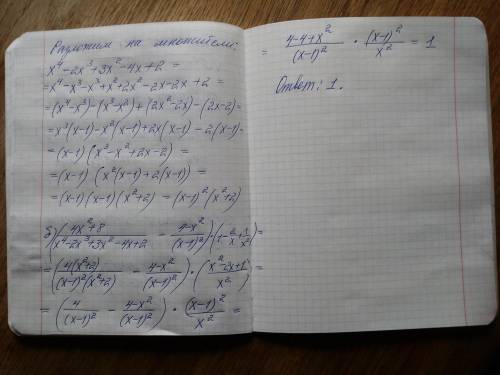 Разложим на множители:
x⁴-2x³+3x²-4x+2 =
=x⁴-x³-x³+x²+2x²-2x-2x+2 =
=(x⁴-x³)-(x³-x²)+(2x²-2x)-(2x-2)=
=x³(x-1)-x²(x-1)+2x(x-1)-2(x-1)=
=(x-1)(x³-x²+2x-2) =
=(x-1)(x²(x-1)+2(x-1)) =
=(x-1)(x-1)(x²+2) = (x-1)²(x²+2)
б) ((4x²+8)/(x⁴-2x³+3x²-4x+2) - (4-x²)/(x-1)²)·(1-2/x+1/x²)=
=(4(x²+2)/((x-1)²(x²+2)) - (4-x²)/(x-1)²)·((x²-2x+1)/x²)=
=(4/(x-1)² - (4-x²)/(x-1)²)·(x-1)²/x² =
= (4-4+x²)/(x-1)² · (x-1)²/x² = 1
Ответ: 1.